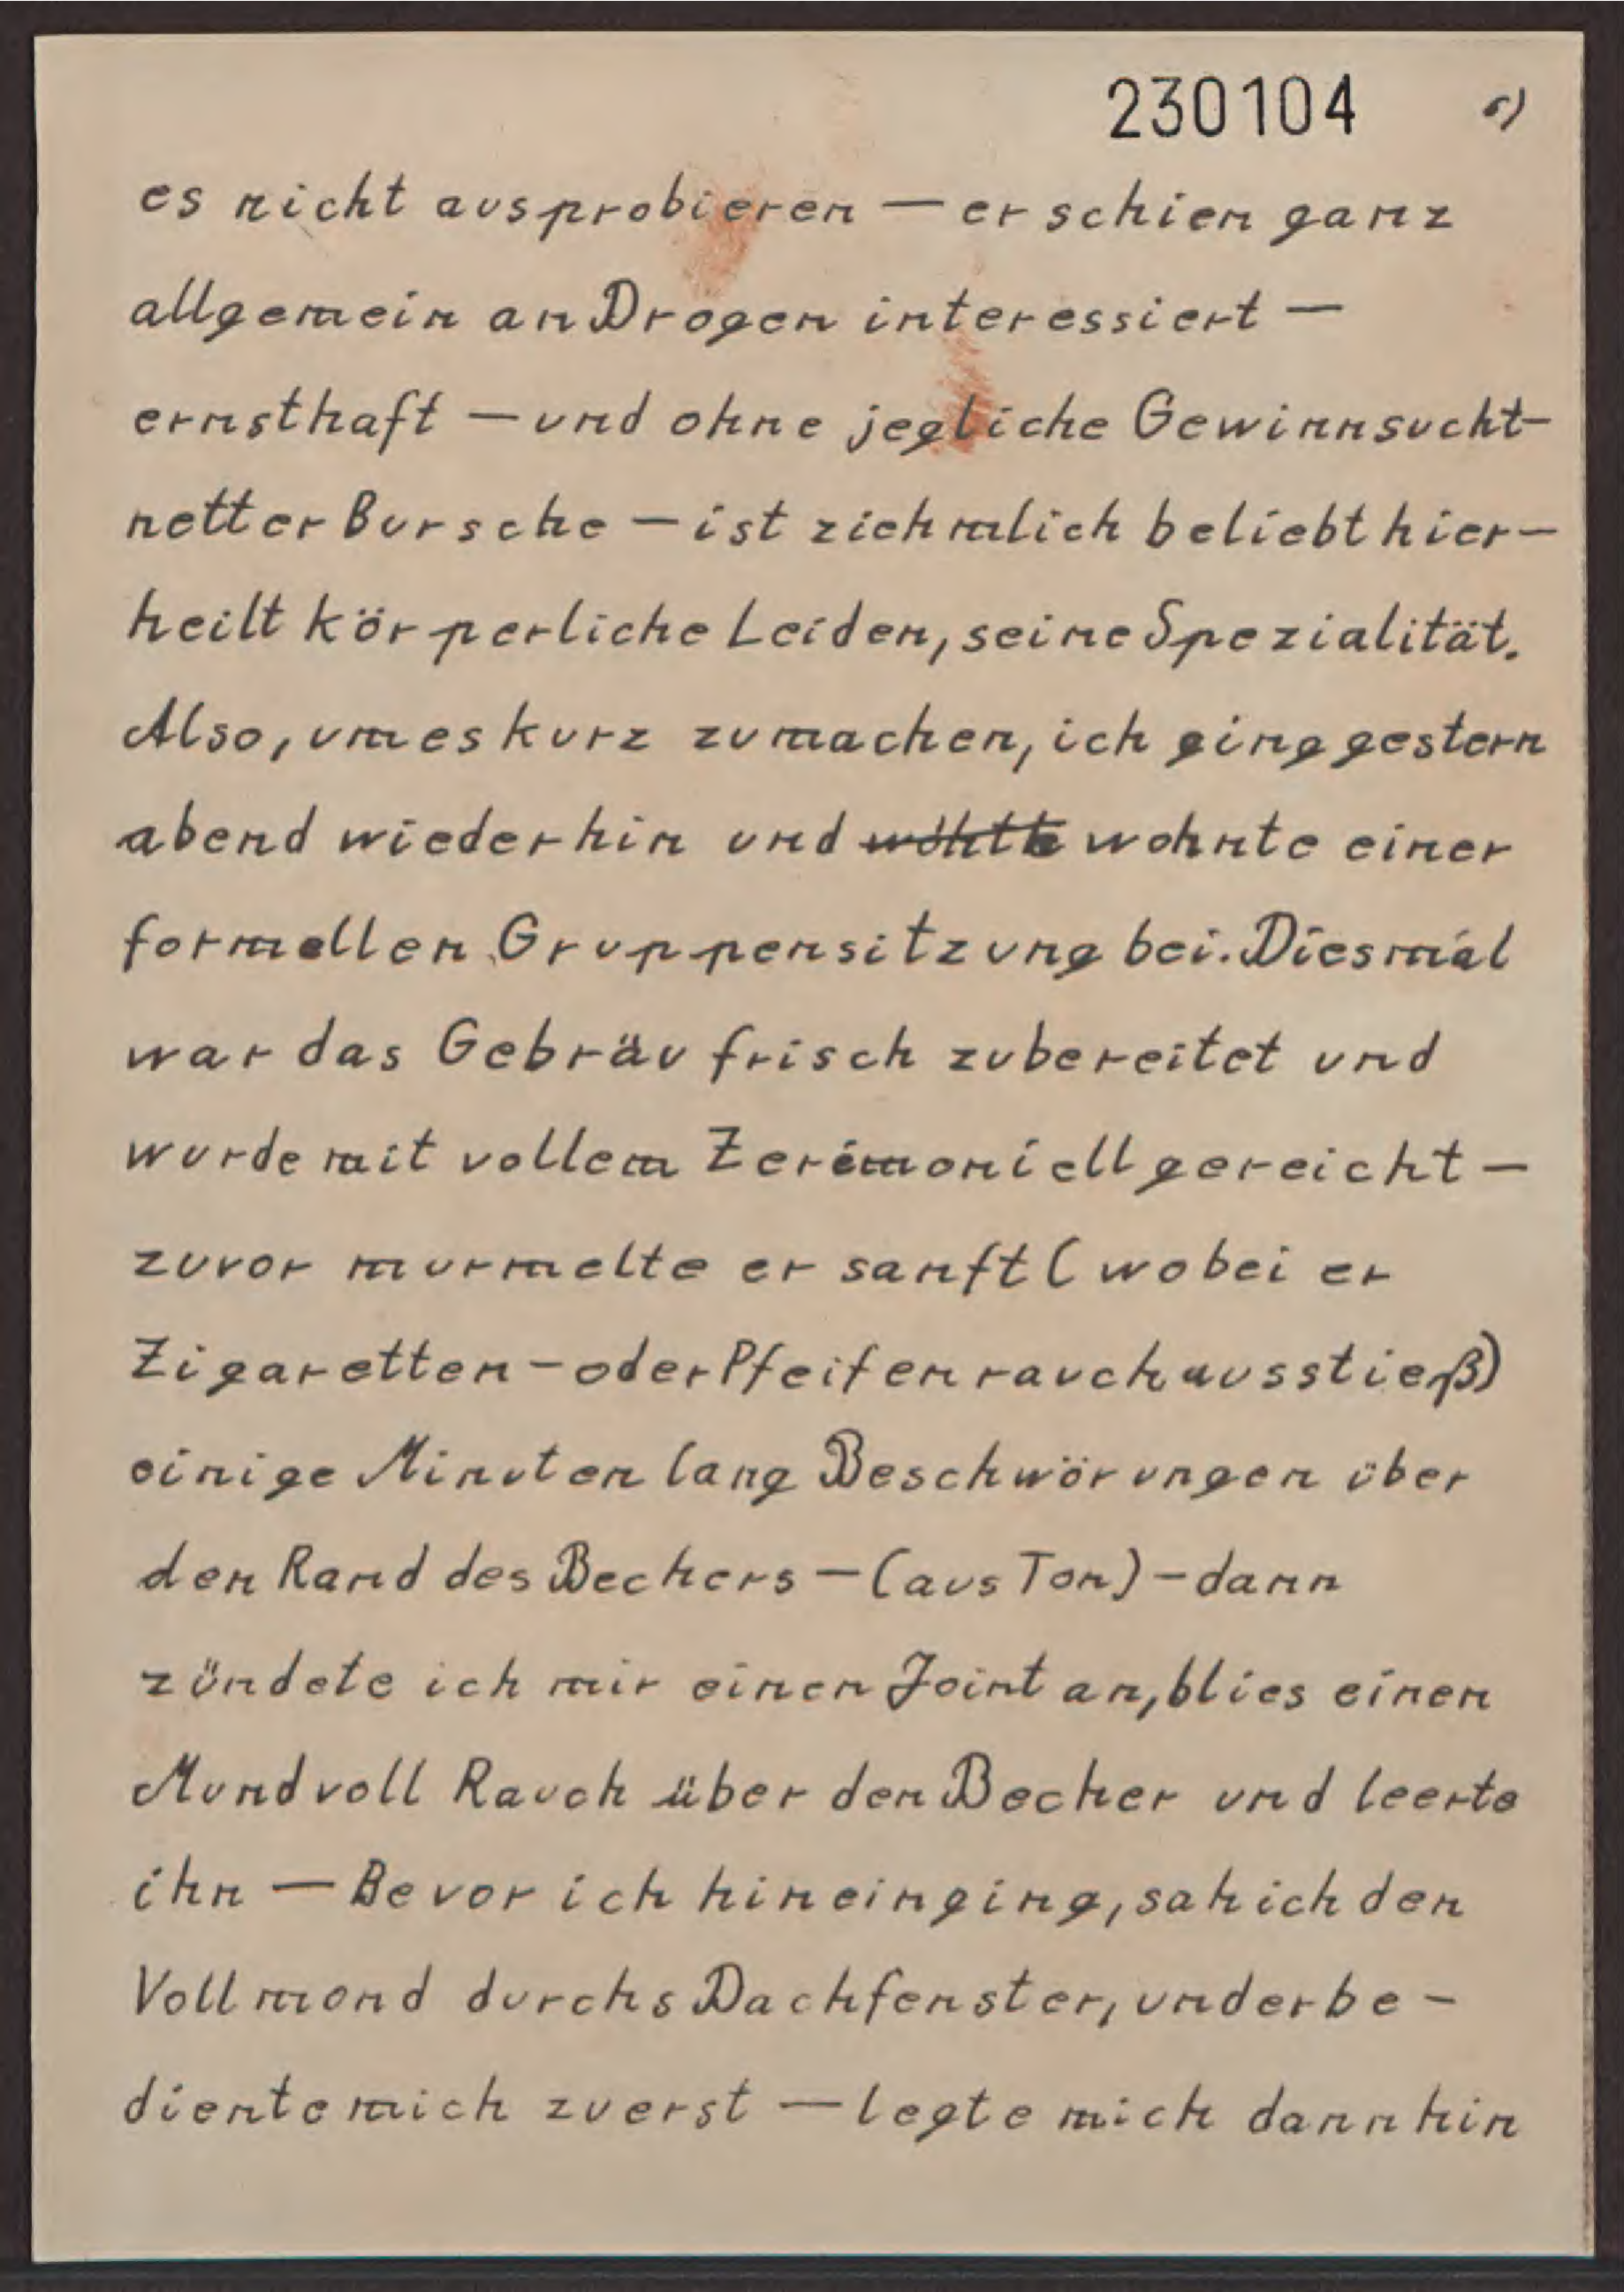 230104
es nicht ausprobieren — er schien ganz
allgemein an Drogen interessiert —
ernsthaft — und ohne jegliche Gewinnsucht—
netter Bursche — ist ziehmlich beliebt hier—
heilt körperliche Leiden, seine Spezialität.
Also, um es kurz zu machen, ich ging gestern
abend wieder hin und wohnte einer
formellen Gruppensitzung bei. Diesmal
war das Gebräu frisch zubereitet und
wurde mit vollem Zeremoniell gereicht —
zuvor murmelte er sanft (wobei er
Zigaretten- oder Pfeifenrauch ausstieß)
einige Minuten lang Beschwörungen über
den Rand des Bechers — (aus Ton) — dann
zündete ich mir einen Joint an, blies einen
Mundvoll Rauch über den Becher und leerte
ihn — Bevor ich hineinging, sah ich den
Vollmond durchs Dachfenster, und er be-
diente mich zuerst — legte mich dann hin